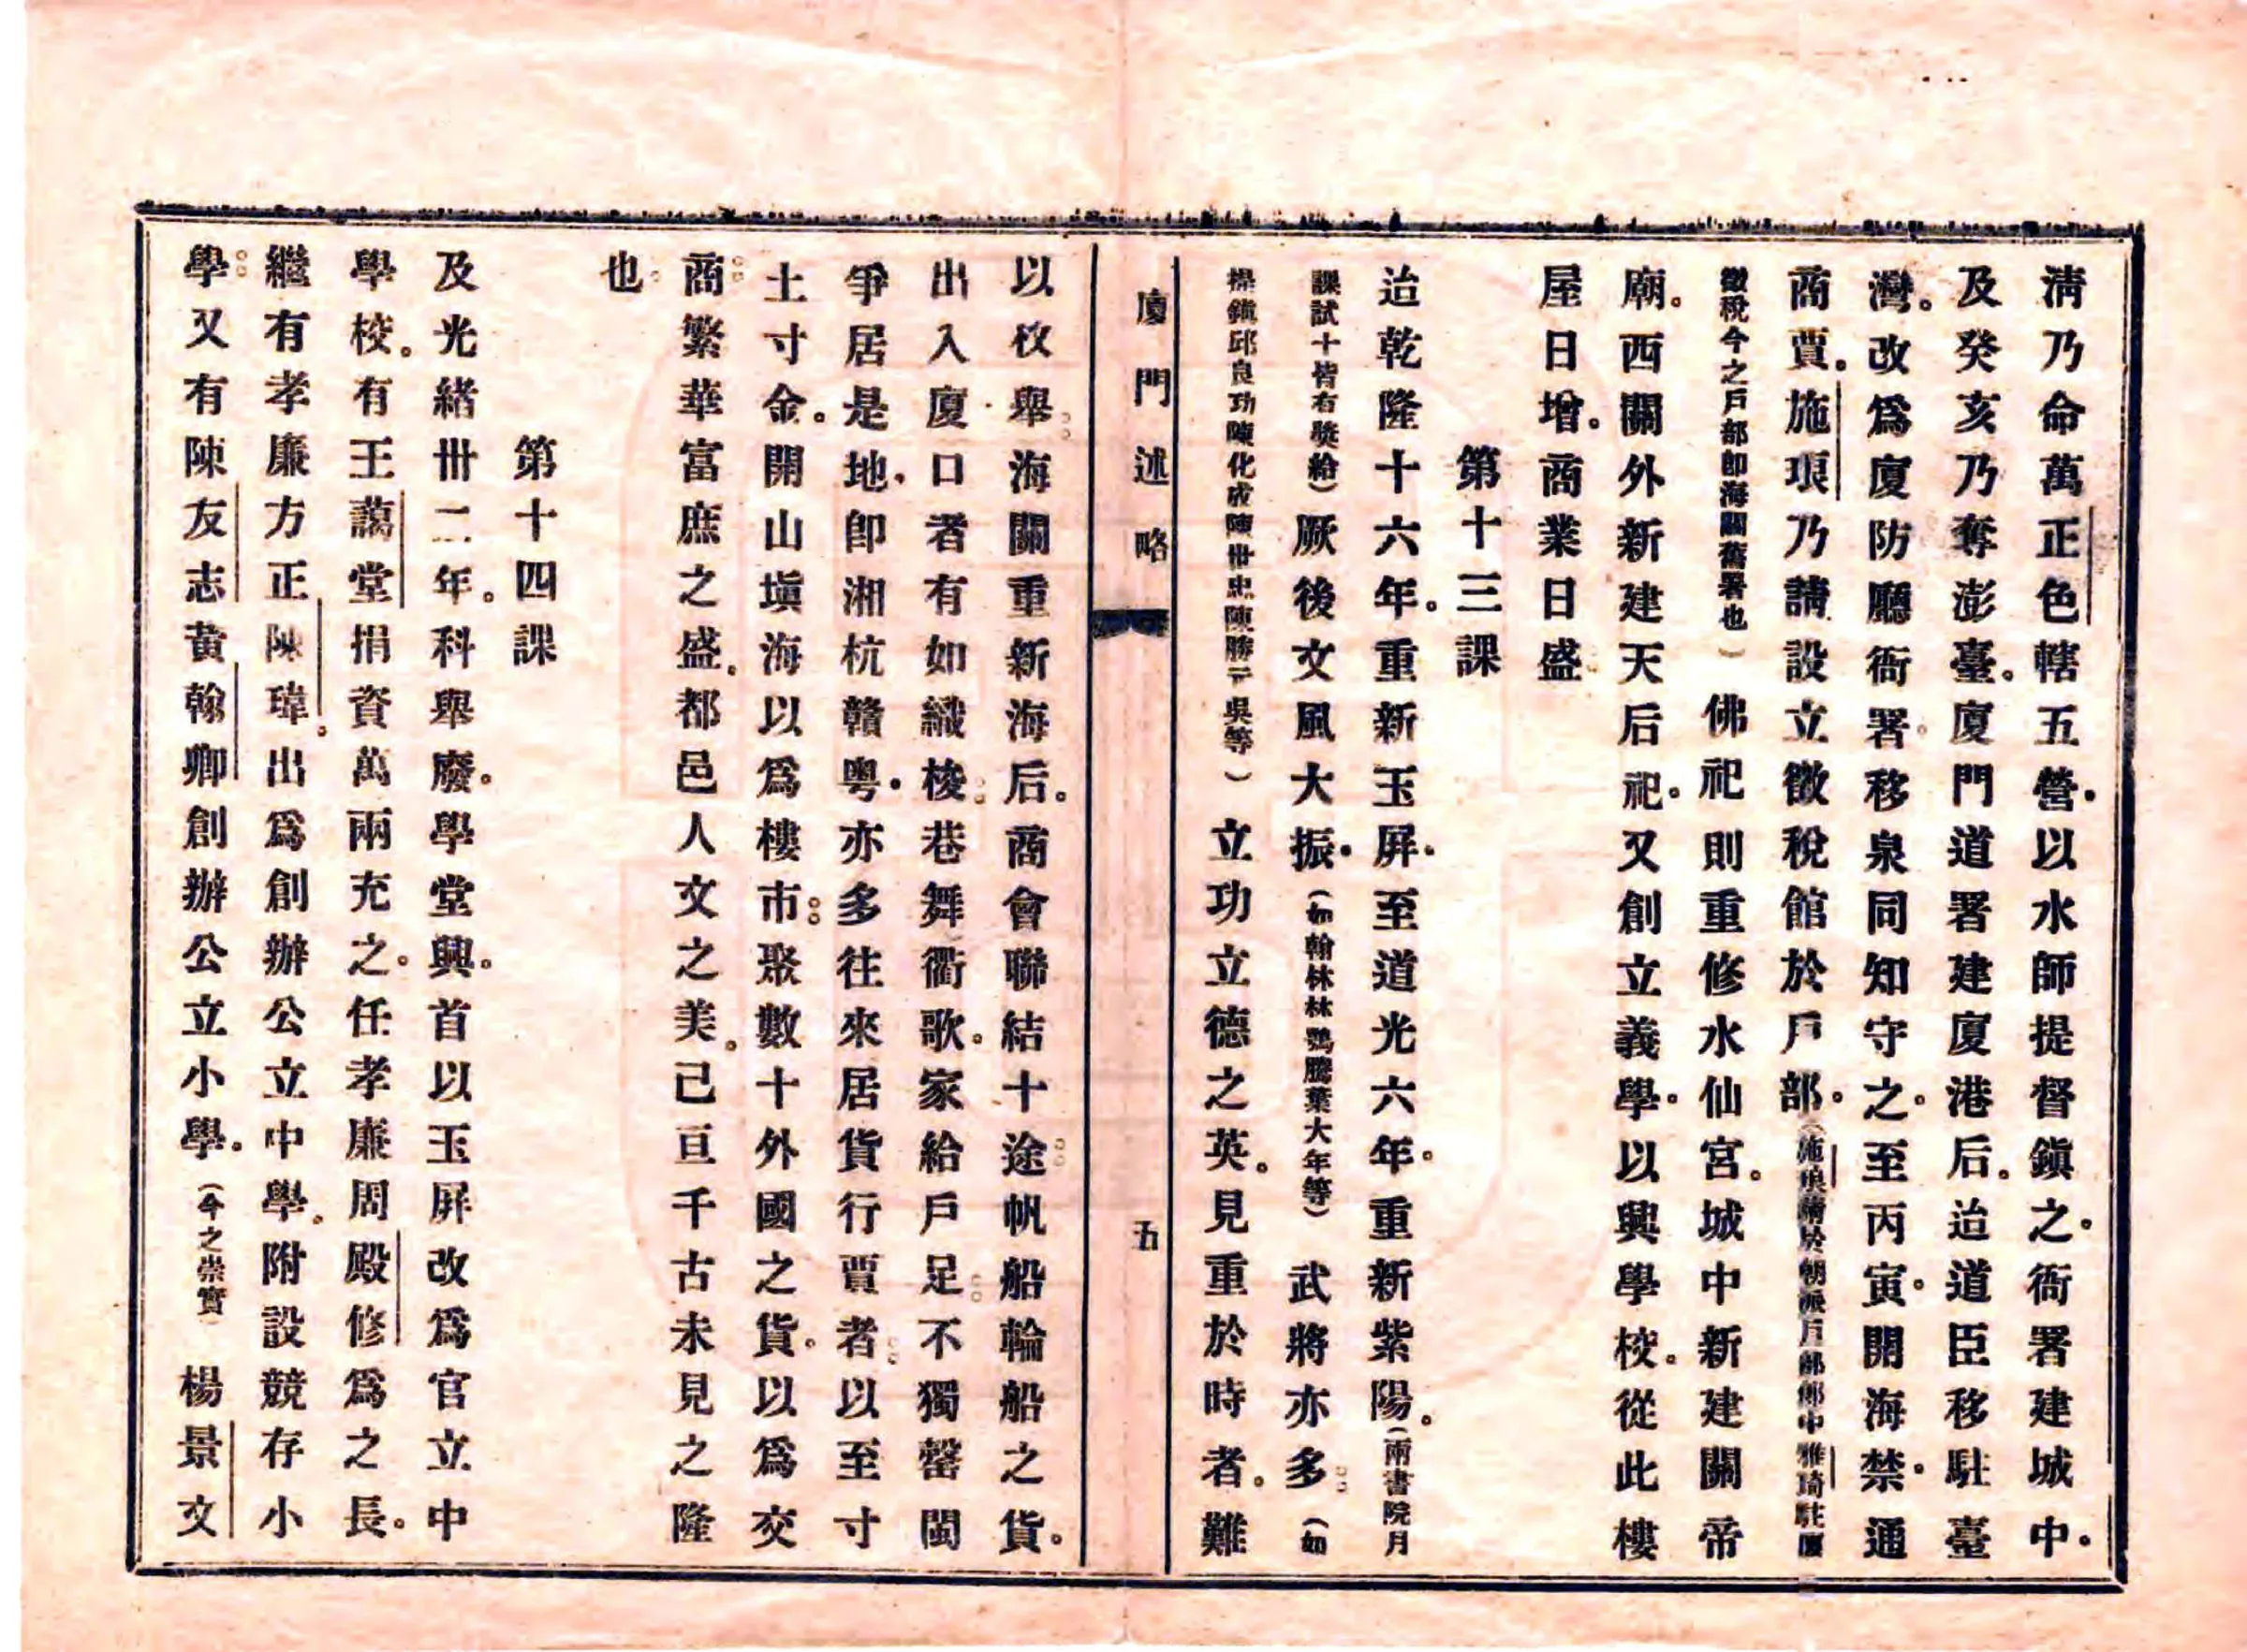 淸乃命萬正色轄五營。以水師提督鎭之。衙署建城中。
及癸亥乃奪澎臺。廈門道署建廈港后。迨道臣移駐臺
灣。改爲廈防廳衙署。移泉同知守之。至丙寅。開海禁。通
商賈。施琅乃請設立徵稅館於戶部。(施琅請於朝派戶部郎中雅琦駐廈
徵稅今之戶部卽海關舊署也)佛祀則重修水仙宮。城中新建關帝
廟。西關外新建天后祀。又創立義學。以興學校。從此樓
屋日增。商業日盛
第十三課
迨乾隆十六年。重新玉屏。至道光六年。重新紫陽。(兩書院月
課試十皆有獎給)厥後文風大振。(如翰林林鶚騰葉大年等)武將亦多。(如
提鎭邱良功陳化成陳世忠陳勝元吳等)立功立德之英。見重於時者。難
廈門述略
五
以枚舉。海關重新海后。商會聯結十途。帆船輪船之貨。
出入廈口者有如織梭。巷舞衢歌。家給戶足。不獨罄閩
爭居是地。卽湘杭贛粤。亦多往來居貨行賈者。以至寸
土寸金。開山塡海以爲樓市。聚數十外國之貨。以爲交
商。繁華富庶之盛。都邑人文之美。己亘千古未見之隆
也。
第十四課
及光緒卅二年。科舉廢。學堂興。首以玉屏改爲官立中
學校。有王藹堂捐資萬兩充之。任孝廉周殿修爲之長。
繼有孝廉方正陳瑋。出爲創辦公立中學。附設競存小
學。又有陳友志黃翰卿創辦公立小學。(今之崇實)楊景文